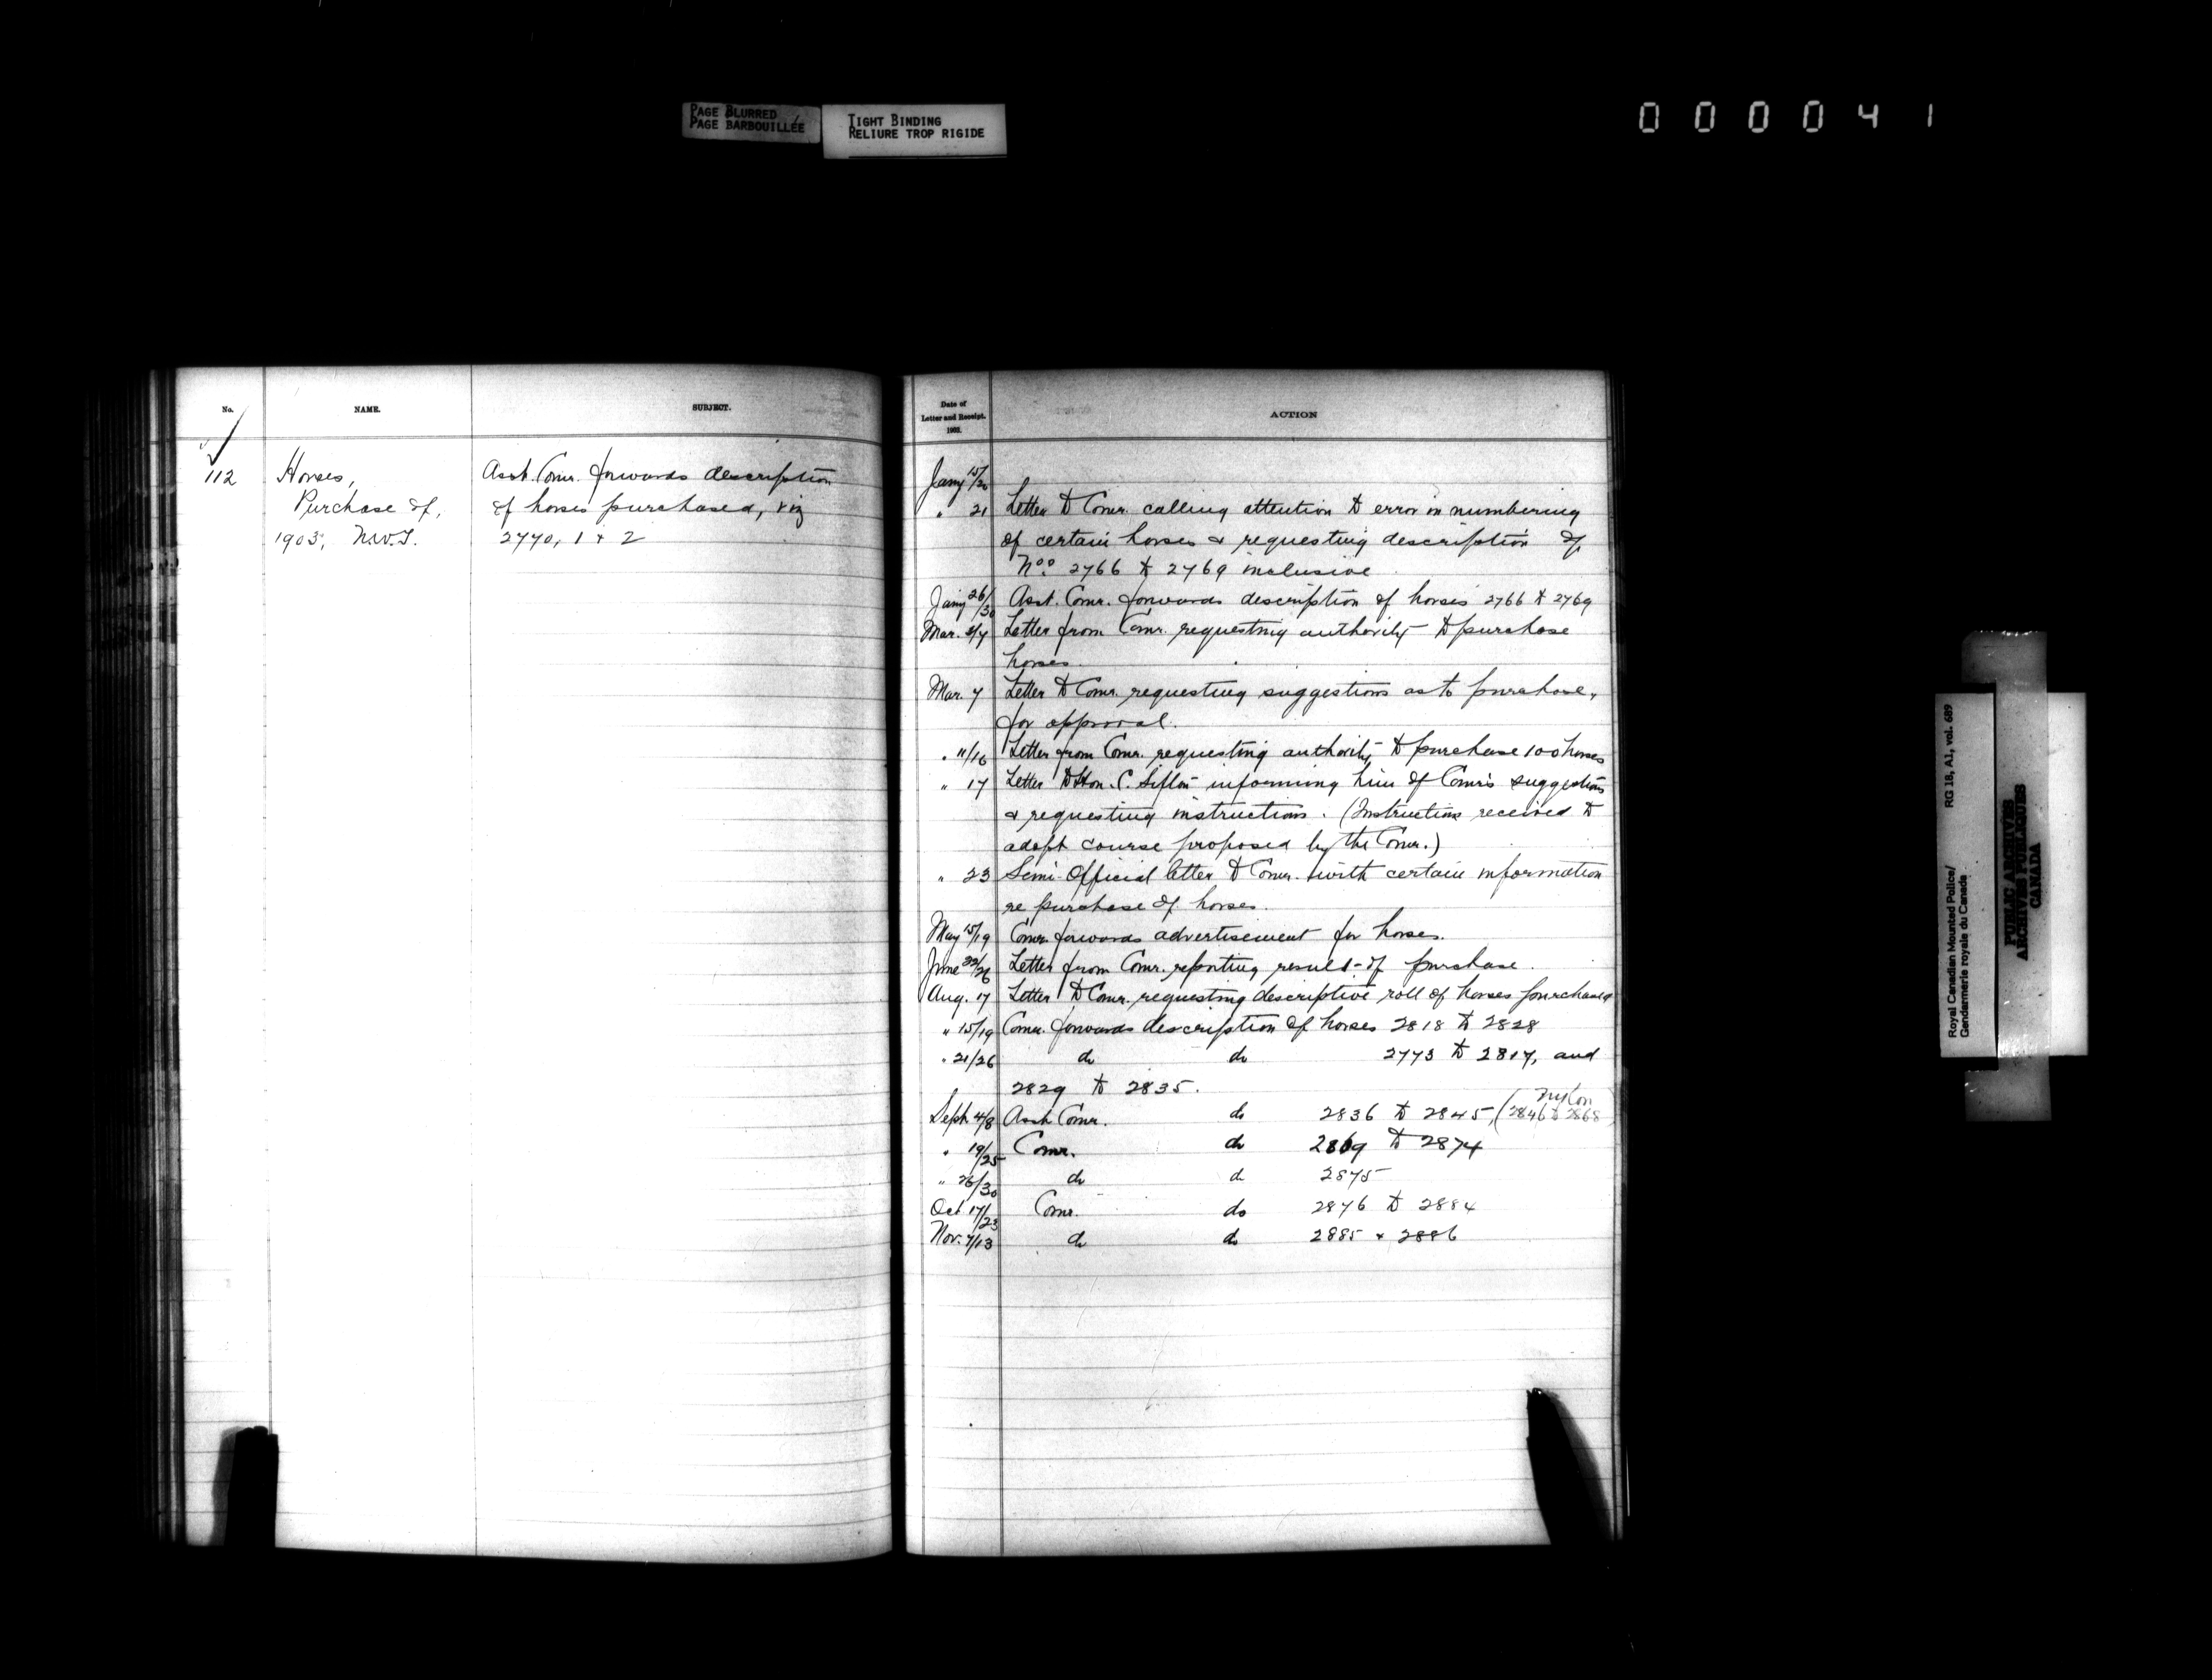 PAGE BLURRED
PAGE BARBOUILLÉE
TIGHT BINDING
RELIURE TROP RIGIDE
000041
No.
NAME.
SUBJECT.
112
Horses,
Purchase of,
1903, N.W.T.
Asst. Comr. forwards description
of horses purchased, viz
2770, 1 & 2
Date of
Letter and Receipt.
1903.
ACTION
Jany 15/20
" 21 Letter to Comr. calling attention to error in numbering
of certain horses & requesting description of
Nos. 2766 to 2769 inclusive
Jany 26/30 Asst. Comr. forwards description of horses 2766 to 2769
Mar. 3/7 Letter from Comr. requesting authority to purchase
horses.
Mar. 7 Letter to Comr. requesting suggestions as to purchase,
for approval.
" 11/16 Letter from Comr. requesting authority to purchase 100 horses
" 17 Letter to Hon. C. Sifton informing him of Comr's suggestions
& requesting instructions. (Instructions received to
adopt course proposed by the Comr.)
" 23 Semi-Official letter to Comr. with certain information
re purchase of horses.
May 15/19 Comr. forwards advertisement for horses.
June 22/26 Letter from Comr. reporting result of purchase.
Aug. 17 Letter to Comr. requesting descriptive roll of horses purchased
" 15/19 Comr. forwards description of horses 2818 to 2828
" 21/26 do do 2773 to 2817, and
2829 to 2835.
Sept. 4/8 Asst Comr. do 2836 to 2845, (2846 to 2868
" 19/25 Comr. do 2869 to 2874
" 26/30 do do 2875
Oct 17/23 Comr. do 2876 to 2884
Nov. 7/13 do do 2885 & 2886
Royal Canadian Mounted Police/
Gendarmerie royale du Canada
RG 18, A1, vol. 689
PUBLIC ARCHIVES
ARCHIVES PUBLIQUES
CANADA